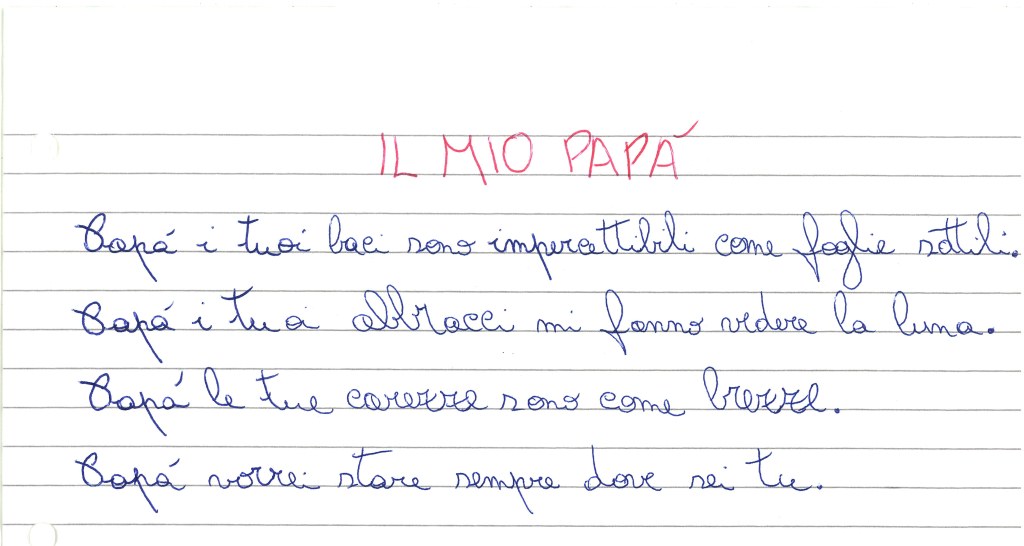 IL MIO PAPÁ
Papá i tuoi baci sono impercettibili come foglie sottili.
Papá i tuoi abbracci mi fanno vedere la luna.
Papá le tue carezze sono come brezze.
Papá vorrei stare sempre dove sei tu.